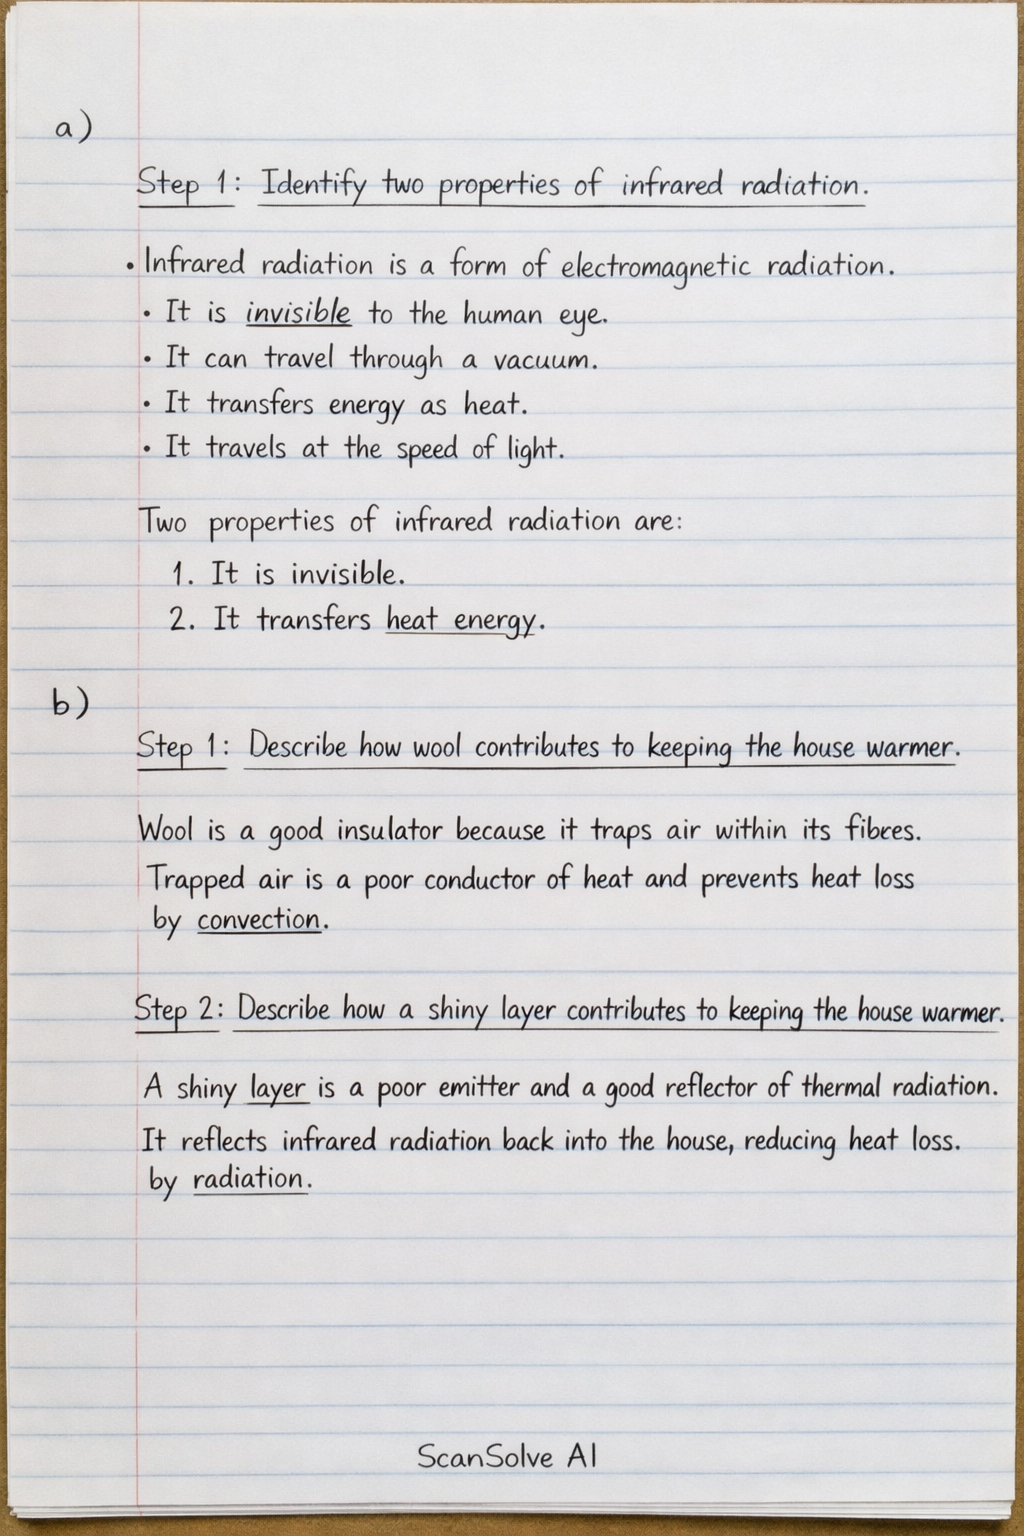 a)
Step 1: Identify two properties of infrared radiation.
• Infrared radiation is a form of electromagnetic radiation.
• It is invisible to the human eye.
• It can travel through a vacuum.
• It transfers energy as heat.
• It travels at the speed of light.
Two properties of infrared radiation are:
1. It is invisible.
2. It transfers heat energy.
b)
Step 1: Describe how wool contributes to keeping the house warmer.
Wool is a good insulator because it traps air within its fibres.
Trapped air is a poor conductor of heat and prevents heat loss
by convection.
Step 2: Describe how a shiny layer contributes to keeping the house warmer.
A shiny layer is a poor emitter and a good reflector of thermal radiation.
It reflects infrared radiation back into the house, reducing heat loss.
by radiation.
ScanSolve AI